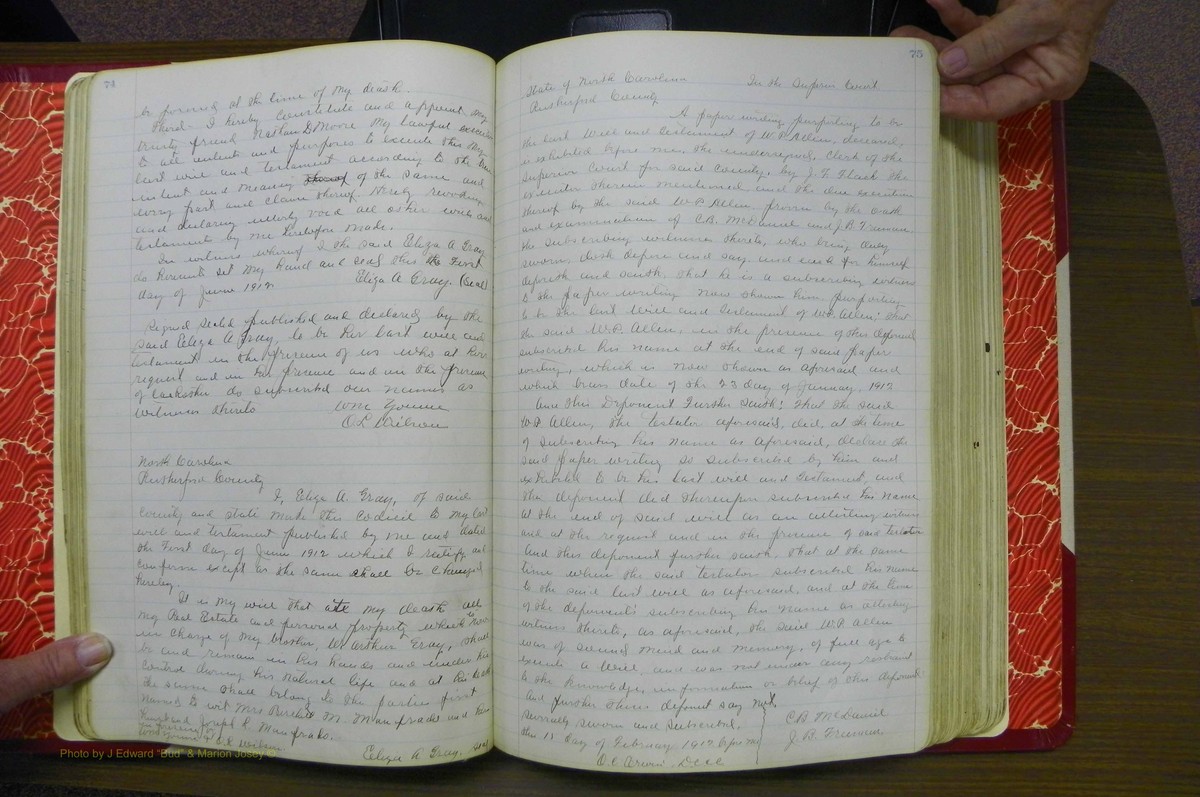 74
be found at the time of my death.
Third I hereby constitute and appoint my
trusty friend Nathan D Moore my lawful executor
to all intent and purposes to execute this my
last will and testament according to the true
intent and meaning of the same and
every part and clause thereof, hereby revoking
and declaring utterly void all other wills and
testaments by me heretofore made.
In witness whereof I the said Eliza A Gray
do hereunto set my hand and seal this the First
day of June 1912 Eliza A Gray. (Seal)
Signed sealed published and declared by the
said Eliza A Gray, to be her last will and
testament in the presence of us who at her
request and in her presence and in the presence
of do subscribed our names as
witness thereto Wm Younce
O L Wilson
North Carolina
Rutherford County
I, Eliza A Gray, of said
County and state make this codicil to my last
will and testament published by me and dated
the First day of June 1912 which I ratify and
confirm except as the same shall be changed
hereby.
It is my will that at my death all
my Real Estate and personal property which is now
in charge of my brother, W. Arthur Gray, shall
be and remain in his hands and under his
control during his natural life and at his death
the same shall belong to the parties first
named to wit Mrs M. and her
husband Joseph R.
in presence of
Wm Younce & O L Wilson
Eliza A Gray, Seal
75
State of North Carolina In the Superior Court
Rutherford County
A paper writing purporting to be
the last will and testament of W.P. Allen, deceased,
is exhibited before me, the undersigned, Clerk of the
Superior Court for said County, by J. F. Flack the
executor therein mentioned and the due execution
thereof by the said W.P. Allen proven by the oath
and examination of C.B. McDaniel and J.B. Freeman
the subscribing witnesses thereto, who being duly
sworn, doth depose and say and each for himself
deposeth and saith, that he is a subscribing witness
to the paper writing now shown him, purporting
to be the last will and testament of W.P. Allen; that
the said W.P. Allen, in the presence of this deponent
subscribed his name at the end of said paper
writing, which is now shown as aforesaid and
which bears date of the 23 day of January, 1912
And this Deponent Further saith: That the said
W.P. Allen, the testator aforesaid, did, at the time
of subscribing his name as aforesaid, declare the
said paper writing so subscribed by him and
exhibited to be his last will and testament, and
this deponent did thereupon subscribe his name
at the end of said will as an attesting witness
and at the request and in the presence of said testator
And this deponent further saith, that at the same
time when the said testator subscribed his name
to the said last will as aforesaid, and at the time
of the deponent's subscribing his name as attesting
witness thereto, as aforesaid, the said W.P. Allen
was of sound mind and memory, of full age to
execute a will and was not under any restraint
to the knowledge, information or belief of this deponent
And further these deponent say not
severally sworn and subscribed. C.B. McDaniel
this 11 day of February 1912 J. B. Freeman
Photo by J Edward "Bud" & Marion Josey ©